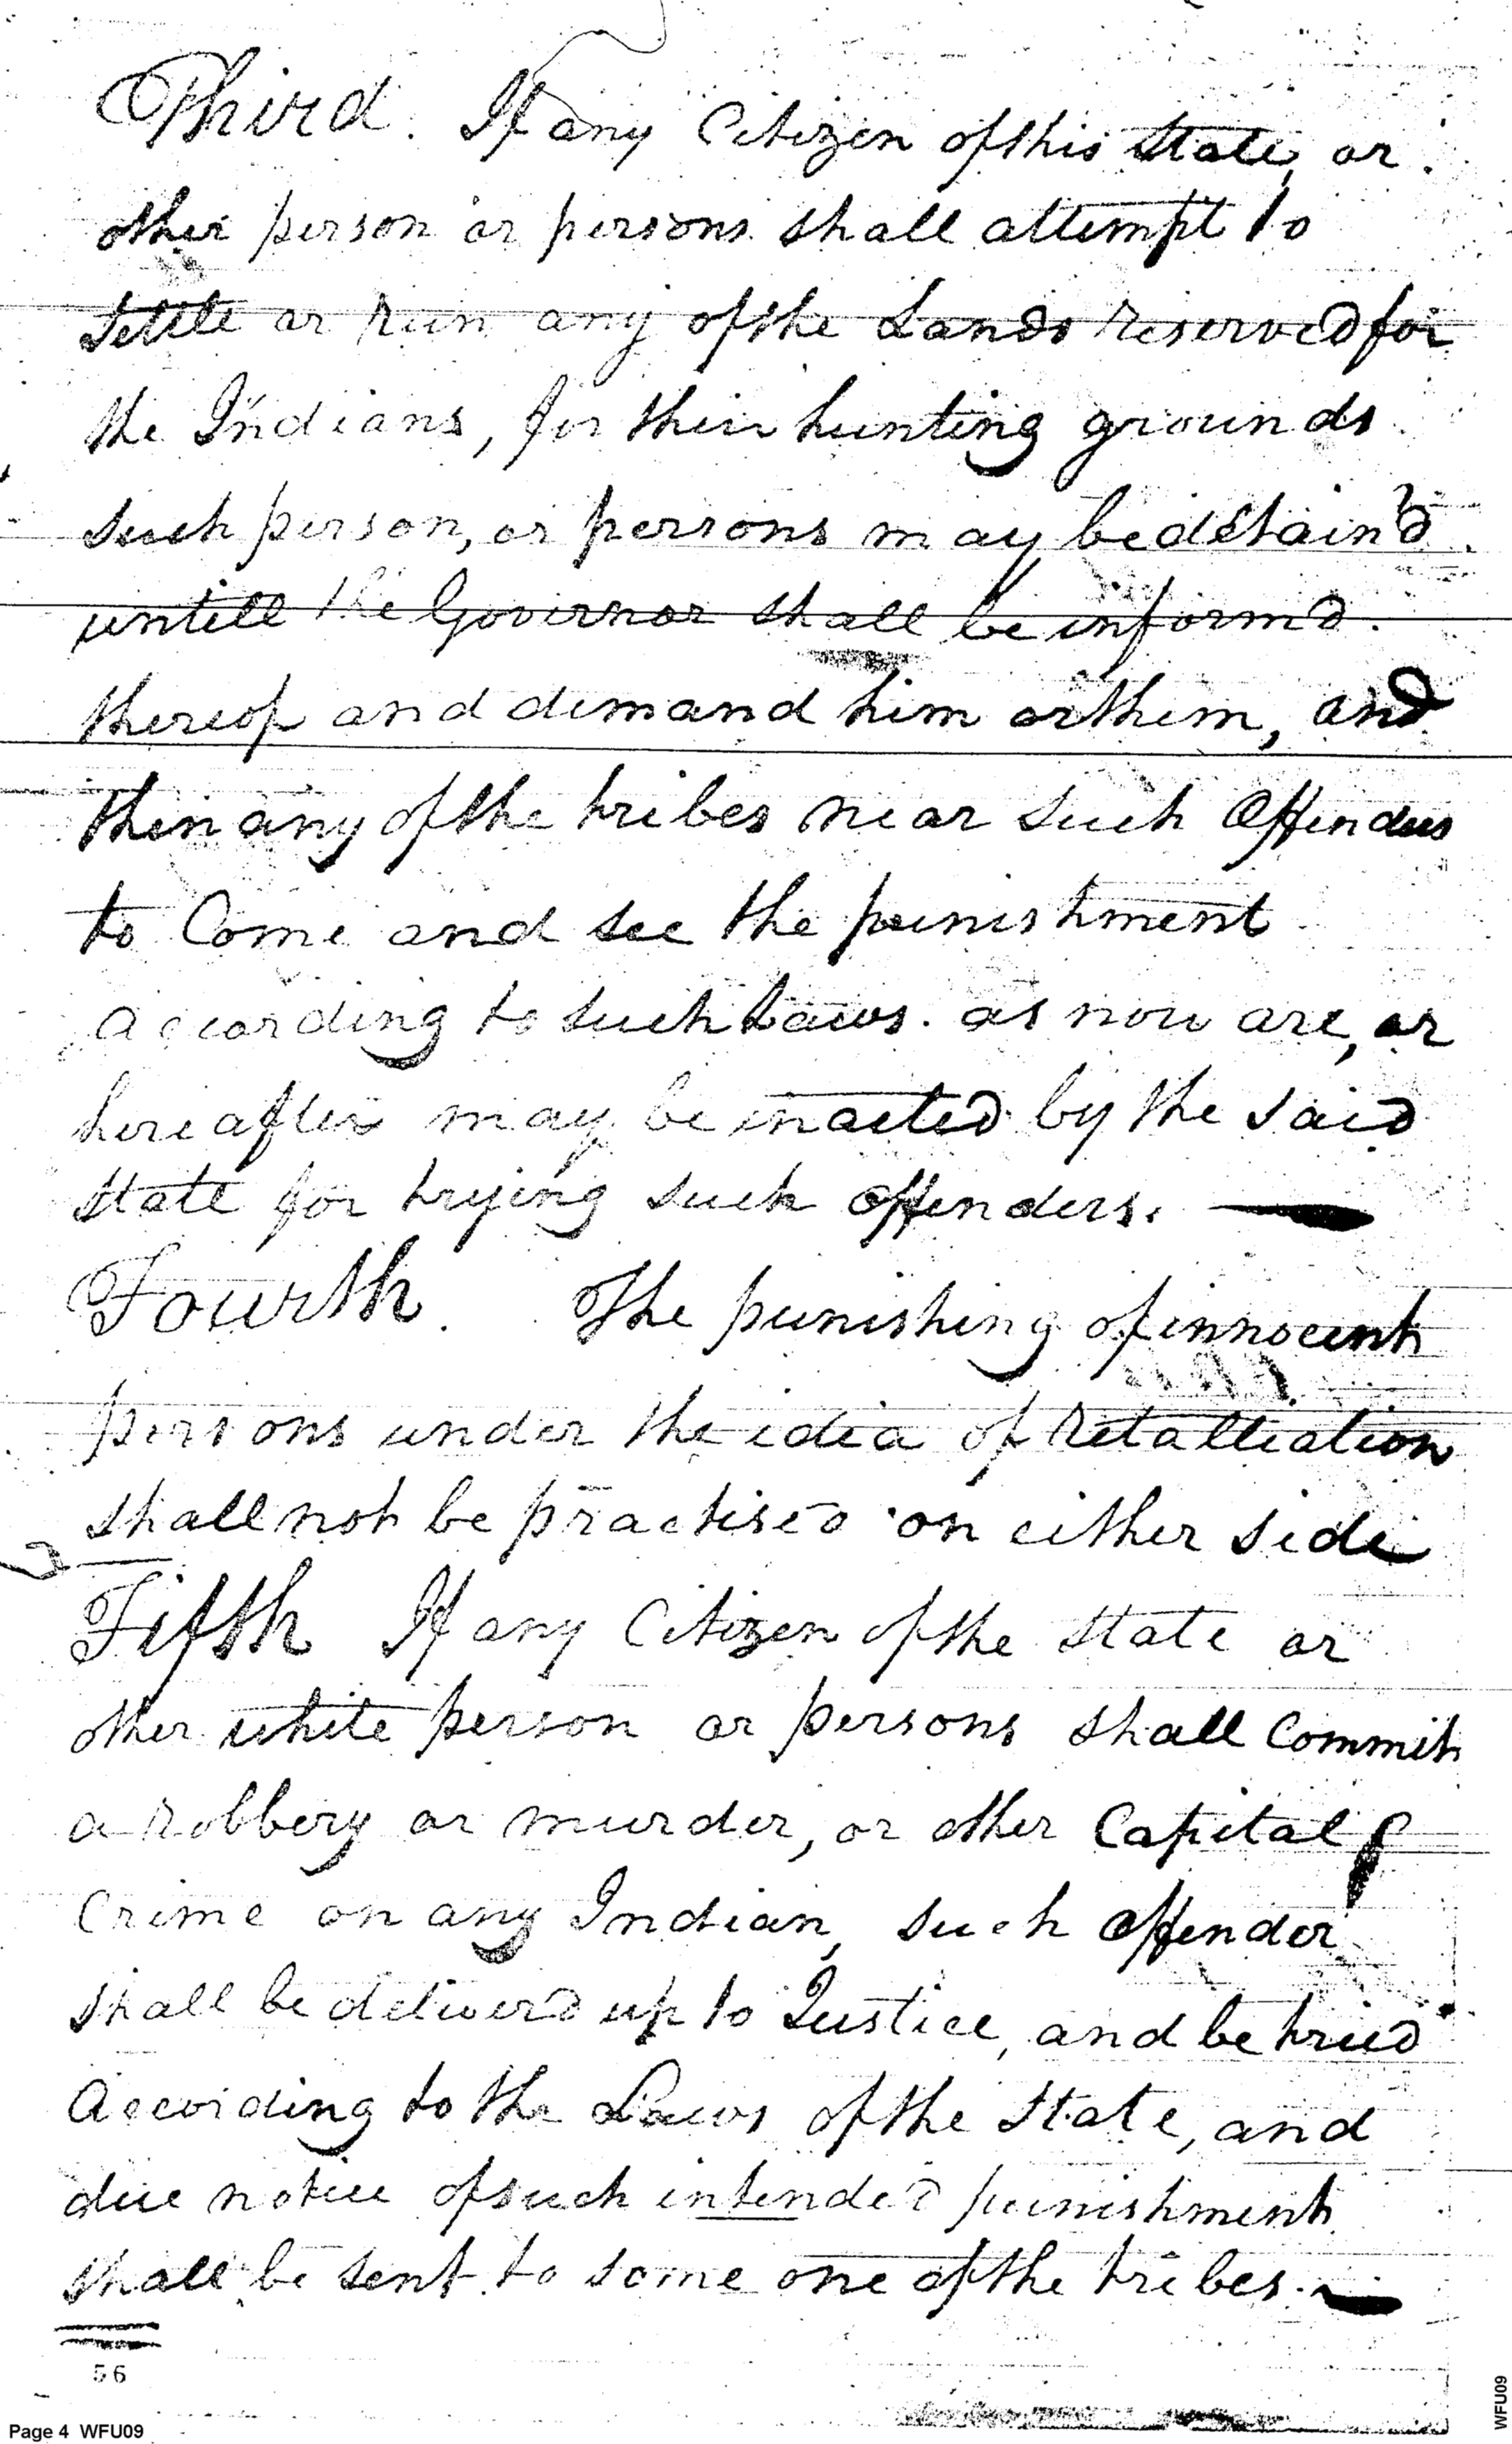 Third. If any Citizen of this State, or
other person or persons shall attempt to
settle or run any of the Lands reserved for
the Indians, for their hunting grounds
such person, or persons may be detain'd
untill the Governor shall be inform'd.
thereof and demand him or them, and
then any of the tribes near such Offenders
to Come and see the punishment
according to such Laws. as now are, or
hereafter may be enacted by the said
State for trying such offenders.
Fourth. The punishing of innocent
persons under the idea of retalliation
shall not be practised on either side
Fifth If any Citizen of the State or
other white person or persons shall Commit
a robbery or murder, or other Capital
Crime on any Indian, such offender
shall be deliverd up to Justice, and be tried
According to the Laws of the State, and
due notice of such intended punishment
shall be sent to some one of the tribes.
56
Page 4 WFU09
WFU09